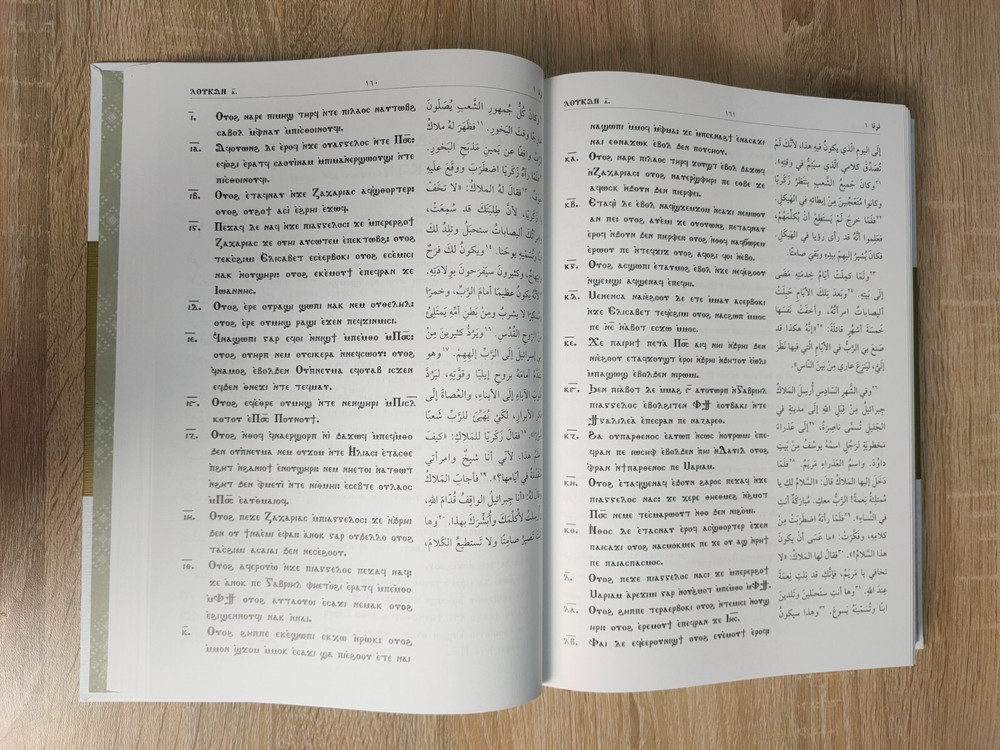 ⲗⲟⲩⲕⲁⲛ ⲁ̅.
١٦٠
ⲓ̅. Ⲟⲩⲟϩ ⲛⲁⲣⲉ ⲡⲓⲙⲏϣ ⲧⲏⲣϥ ⲛ̀ⲧⲉ ⲡⲓⲗⲁⲟⲥ ⲛⲁⲩⲧⲱⲃϩ
ⲥⲁⲃⲟⲗ ⲙ̀ⲫⲛⲁⲩ ⲙ̀ⲡⲓⲥⲑⲟⲓⲛⲟⲩϥⲓ.
ⲓ̅ⲁ̅. Ⲁϥⲟⲩⲱⲛϩ ⲇⲉ ⲉ̀ⲣⲟϥ ⲛ̀ϫⲉ ⲟⲩⲁⲅⲅⲉⲗⲟⲥ ⲛ̀ⲧⲉ Ⲡⲟ̅ⲥ̅
ⲉϥⲟ̀ϩⲓ ⲉ̀ⲣⲁⲧϥ ⲥⲁⲟⲩⲓ̀ⲛⲁⲙ ⲙ̀ⲡⲓⲙⲁⲛⲉⲣϣⲱⲟⲩϣⲓ ⲛ̀ⲧⲉ
ⲡⲓⲥⲑⲟⲓⲛⲟⲩϥⲓ.
ⲓ̅ⲃ̅. Ⲟⲩⲟϩ ⲉ̀ⲧⲁϥⲛⲁⲩ ⲛ̀ϫⲉ Ⲍⲁⲭⲁⲣⲓⲁⲥ ⲁϥϣ̀ⲑⲟⲣⲧⲉⲣ
ⲟⲩⲟϩ ⲟⲩϩⲟϯ ⲁⲥⲓ̀ ⲉ̀ϩⲣⲏⲓ ⲉ̀ϫⲱϥ.
ⲓ̅ⲅ̅. Ⲡⲉϫⲁϥ ⲇⲉ ⲛⲁϥ ⲛ̀ϫⲉ ⲡⲓⲁⲅⲅⲉⲗⲟⲥ ϫⲉ ⲙ̀ⲡⲉⲣⲉⲣϩⲟϯ
Ⲍⲁⲭⲁⲣⲓⲁⲥ ϫⲉ ⲟⲩⲏⲓ ⲁⲩⲥⲱⲧⲉⲙ ⲉ̀ⲡⲉⲕⲧⲱⲃϩ ⲟⲩⲟϩ
ⲧⲉⲕⲥ̀ϩⲓⲙⲓ Ⲉⲗⲓⲥⲁⲃⲉⲧ ⲉⲥⲉ̀ⲉⲣⲃⲟⲕⲓ ⲟⲩⲟϩ ⲉⲥⲉ̀ⲙⲓⲥⲓ
ⲛⲁⲕ ⲛ̀ⲟⲩϣⲏⲣⲓ ⲟⲩⲟϩ ⲉⲕⲉ̀ⲙⲟⲩϯ ⲉ̀ⲡⲉϥⲣⲁⲛ ϫⲉ
Ⲓⲱⲁⲛⲛⲏⲥ.
ⲓ̅ⲇ̅. Ⲟⲩⲟϩ ⲉⲣⲉ ⲟⲩⲣⲁϣⲓ ϣⲱⲡⲓ ⲛⲁⲕ ⲛⲉⲙ ⲟⲩⲑⲉⲗⲏⲗ:
ⲟⲩⲟϩ ⲉⲣⲉ ⲟⲩⲙⲏϣ ⲣⲁϣⲓ ⲉ̀ϫⲉⲛ ⲡⲉϥϫⲓⲛⲙⲓⲥⲓ.
ⲓ̅ⲉ̅. Ϥ̀ⲛⲁϣⲱⲡⲓ ⲅⲁⲣ ⲉϥⲟⲓ ⲛ̀ⲛⲓϣϯ ⲙ̀ⲡⲉⲙ̀ⲑⲟ ⲙ̀Ⲡⲟ̅ⲥ̅:
ⲟⲩⲟϩ ⲟⲩⲏⲣⲡ ⲛⲉⲙ ⲟⲩⲥⲓⲕⲉⲣⲁ ⲛ̀ⲛⲉϥⲥⲱⲟⲩⲓ ⲟⲩⲟϩ
ϥ̀ⲛⲁⲙⲟϩ ⲉ̀ⲃⲟⲗϧⲉⲛ Ⲟⲩⲡⲛⲉⲩⲙⲁ ⲉϥⲟⲩⲁⲃ ⲓⲥϫⲉⲛ
ⲉϥϧⲉⲛ ⲑ̀ⲛⲉϫⲓ ⲛ̀ⲧⲉ ⲧⲉϥⲙⲁⲩ.
ⲓ̅ⲋ̅. Ⲟⲩⲟϩ ⲉϥⲉ̀ⲑⲣⲉ ⲟⲩⲙⲏϣ ⲛ̀ⲧⲉ ⲛⲉⲛϣⲏⲣⲓ ⲙ̀Ⲡⲓⲥ̅ⲗ̅
ⲕⲟⲧⲟⲩ ⲉ̀Ⲡⲟ̅ⲥ̅ Ⲡⲟⲩⲛⲟⲩϯ.
ⲓ̅ⲍ̅. Ⲟⲩⲟϩ ⲛ̀ⲑⲟϥ ϥ̀ⲛⲁⲉⲣϣⲟⲣⲡ ⲛ̀ⲓ̀ ϧⲁϫⲱϥ ⲙ̀ⲡⲉϥⲙ̀ⲑⲟ
ϧⲉⲛ ⲟⲩⲡⲛⲉⲩⲙⲁ ⲛⲉⲙ ⲟⲩϫⲟⲙ ⲛ̀ⲧⲉ Ⲏⲗⲓⲁⲥ ⲉ̀ⲧⲁⲥⲑⲉ
ⲛ̀ϩⲏⲧ ⲛ̀ϩⲁⲛⲓⲟϯ ⲉ̀ⲛⲟⲩϣⲏⲣⲓ ⲛⲉⲙ ⲛⲏⲉⲧⲟⲓ ⲛ̀ⲁⲧⲑⲱⲧ
ⲛ̀ϩⲏⲧ ϧⲉⲛ ⲫ̀ⲙⲉⲩⲓ̀ ⲛ̀ⲧⲉ ⲛⲓⲑ̀ⲙⲏⲓ ⲉ̀ⲥⲉⲃⲧⲉ ⲟⲩⲗⲁⲟⲥ
ⲙ̀Ⲡⲟ̅ⲥ̅ ⲉϥⲥⲉⲃⲧⲱⲧ.
ⲓ̅ⲏ̅. Ⲟⲩⲟϩ ⲡⲉϫⲉ Ⲍⲁⲭⲁⲣⲓⲁⲥ ⲙ̀ⲡⲓⲁⲅⲅⲉⲗⲟⲥ ϫⲉ ⲛ̀ϩⲣⲏⲓ
ϧⲉⲛ ⲟⲩ ϯⲛⲁⲉ̀ⲙⲓ ⲉ̀ⲫⲁⲓ ⲁⲛⲟⲕ ⲅⲁⲣ ⲟⲩϧⲉⲗⲗⲟ ⲟⲩⲟϩ
ⲧⲁⲥ̀ϩⲓⲙⲓ ⲁⲥⲁⲓⲁⲓ ϧⲉⲛ ⲛⲉⲥⲉ̀ϩⲟⲟⲩ.
ⲓ̅ⲑ̅. Ⲟⲩⲟϩ ⲁϥⲉⲣⲟⲩⲱ̀ ⲛ̀ϫⲉ ⲡⲓⲁⲅⲅⲉⲗⲟⲥ ⲡⲉϫⲁϥ ⲛⲁϥ
ϫⲉ ⲁⲛⲟⲕ ⲡⲉ Ⲅⲁⲃⲣⲓⲏⲗ ⲫⲏⲉⲧⲟ̀ϩⲓ ⲉ̀ⲣⲁⲧϥ ⲙ̀ⲡⲉⲙⲑⲟ
ⲙ̀Ⲫϯ ⲟⲩⲟϩ ⲁⲩⲧⲁⲟⲩⲟⲓ ⲉ̀ⲥⲁϫⲓ ⲛⲉⲙⲁⲕ ⲟⲩⲟϩ
ⲉ̀ϩⲓϣⲉⲛⲛⲟⲩϥⲓ ⲛⲁⲕ ⲛ̀ⲛⲁⲓ.
ⲕ̅. Ⲟⲩⲟϩ ϩⲏⲡⲡⲉ ⲉⲕⲉ̀ϣⲱⲡⲓ ⲉⲕⲭⲱ ⲛ̀ⲣⲱⲕ ⲟⲩⲟϩ
ⲙ̀ⲙⲟⲛ ϣ̀ϫⲟⲙ ⲙ̀ⲙⲟⲕ ⲉ̀ⲥⲁϫⲓ ϣⲁ ⲡⲓⲉ̀ϩⲟⲟⲩ ⲉ̀ⲧⲉ ⲛⲁⲓ
وكانَ كُلُّ جُمهورِ الشَّعبِ يُصَلّونَ
وقتَ البَخورِ. ١١فظَهَرَ لهُ ملاكُ
واقِفًا عن يَمينِ مَذبَحِ البَخورِ.
رآهُ زَكَريّا اضطَرَبَ ووقَعَ علَيهِ
١٣فقالَ لهُ الملاكُ: «لا تخَفْ
زَكَريّا، لأنَّ طِلبَتَكَ قد سُمِعَتْ،
أليصاباتُ ستَحبَلُ وتلِدُ لكَ
وتُسَمّيهِ يوحَنا. ١٤ويكونُ لكَ فرَحٌ
وكثيرونَ سيَفرَحونَ بوِلادَتِهِ،
لأنَّهُ يكونُ عظيمًا أمامَ الرَّبِّ، وخمرًا
لا يشرَبُ ومِنْ بَطنِ أُمِّهِ يَمتَلِئُ
الرّوحِ القُدُسِ. ١٦ويَرُدُّ كثيرينَ مِنْ
إسرائيلَ إلَى الرَّبِّ إلهِهِمْ. ١٧وهو
أمامَهُ بروحِ إيليّا وقوَّتِهِ، ليَرُدَّ
الآباءِ إلَى الأبناءِ، والعُصاةَ إلَى
الأبرارِ، لكَيْ يُهَيِّئَ للرَّبِّ شَعبًا
١٨فقالَ زَكَريّا للمَلاكِ: «كيفَ
هذا، لأنّي أنا شَيخٌ وامرأتي
في أيّامِها؟». ١٩فأجابَ المَلاكُ
لهُ: «أنا جِبرائيلُ الواقِفُ قُدّامَ اللهِ،
لأُكَلِّمَكَ وأُبَشِّرَكَ بهذا. ٢٠وها
صامِتًا ولا تستَطيعُ الكَلامَ،
ⲗⲟⲩⲕⲁⲛ ⲁ̅.
١٦١
لوقا ١
ⲛⲁϣⲱⲡⲓ ⲙ̀ⲙⲟϥ ⲙ̀ⲫⲙⲁⲓ ϫⲉ ⲙ̀ⲡⲉⲕⲛⲁϩϯ ⲉ̀ⲛⲁⲥⲁϫⲓ
ⲛⲁⲓ ⲉⲑⲛⲁϫⲱⲕ ⲉ̀ⲃⲟⲗ ϧⲉⲛ ⲡⲟⲩⲥⲏⲟⲩ.
ⲕ̅ⲁ̅. Ⲟⲩⲟϩ ⲛⲁⲣⲉ ⲡⲓⲗⲁⲟⲥ ⲧⲏⲣϥ ϫⲟⲩϣⲧ ⲉ̀ⲃⲟⲗ ϧⲁϫⲱϥ
ⲛ̀Ⲍⲁⲭⲁⲣⲓⲁⲥ ⲟⲩⲟϩ ⲛⲁⲩⲉⲣϣ̀ⲫⲏⲣⲓ ⲡⲉ ⲉⲑⲃⲉ ϫⲉ
ⲁϥⲱⲥⲕ ⲛ̀ϧⲟⲩⲛ ϧⲉⲛ ⲡⲓⲉⲣⲫⲉⲓ.
ⲕ̅ⲃ̅. Ⲉⲧⲁϥⲓ̀ ⲇⲉ ⲉ̀ⲃⲟⲗ ⲛⲁϥϣ̀ϫⲉⲙϫⲟⲙ ⲛ̀ⲥⲁϫⲓ ⲛⲉⲙⲱⲟⲩ
ⲁⲛ ⲡⲉ ⲟⲩⲟϩ ⲁⲩⲉ̀ⲙⲓ ϫⲉ ⲟⲩⲟⲩⲱⲛϩ ⲡⲉⲧⲁϥⲛⲁⲩ
ⲉ̀ⲣⲟϥ ⲛ̀ϧⲟⲩⲛ ϧⲉⲛ ⲡⲓⲉⲣⲫⲉⲓ ⲟⲩⲟϩ ⲛ̀ⲑⲟϥ ⲛⲁϥϭⲱⲣⲉⲙ
ⲉ̀ⲣⲱⲟⲩ ⲡⲉ ⲛ̀ⲧⲉϥϫⲓϫ ⲟⲩⲟϩ ⲁϥⲟ̀ϩⲓ ϥⲟⲓ ⲛ̀ⲉⲃⲟ.
ⲕ̅ⲅ̅. Ⲟⲩⲟϩ ⲁⲥϣⲱⲡⲓ ⲉ̀ⲧⲁⲩⲙⲟϩ ⲉ̀ⲃⲟⲗ ⲛ̀ϫⲉ ⲛⲉϥⲉ̀ϩⲟⲟⲩ
ⲛ̀ϣⲉⲙϣⲓ ⲁϥϣⲉⲛⲁϥ ⲉ̀ⲡⲉϥⲏⲓ.
ⲕ̅ⲇ̅. Ⲙⲉⲛⲉⲛⲥⲁ ⲛⲁⲓⲉ̀ϩⲟⲟⲩ ⲇⲉ ⲉ̀ⲧⲉ ⲙ̀ⲙⲁⲩ ⲁⲥⲉⲣⲃⲟⲕⲓ
ⲛ̀ϫⲉ Ⲉⲗⲓⲥⲁⲃⲉⲧ ⲧⲉϥⲥ̀ϩⲓⲙⲓ ⲟⲩⲟϩ ⲛⲁⲥϩⲱⲡ ⲙ̀ⲙⲟⲥ
ⲡⲉ ⲛ̀ⲉ̅ ⲛ̀ⲁ̀ⲃⲟⲧ ⲉⲥϫⲱ ⲙ̀ⲙⲟⲥ.
ⲕ̅ⲉ̅. Ϫⲉ ⲡⲁⲓⲣⲏϯ ⲡⲉⲧⲁ̀ Ⲡⲟ̅ⲥ̅ ⲁⲓϥ ⲛⲏⲓ ⲛ̀ϩⲣⲏⲓ ϧⲉⲛ
ⲛⲓⲉ̀ϩⲟⲟⲩ ⲉⲧⲁϥϫⲟⲩϣⲧ ⲉ̀ⲣⲟⲓ ⲛ̀ϧⲣⲏⲓ ⲛ̀ϧⲏⲧⲟⲩ ⲉ̀ⲱ̀ⲗⲓ
ⲙ̀ⲡⲁϣⲱϣ ⲉ̀ⲃⲟⲗϧⲉⲛ ⲛⲓⲣⲱⲙⲓ.
ⲕ̅ⲋ̅. Ϧⲉⲛ ⲡⲓⲁ̀ⲃⲟⲧ ⲇⲉ ⲙ̀ⲙⲁϩ ⲋ̅ ⲁⲩⲟⲩⲱⲣⲡ ⲛ̀Ⲅⲁⲃⲣⲓⲏⲗ
ⲡⲓⲁⲅⲅⲉⲗⲟⲥ ⲉ̀ⲃⲟⲗϩⲓⲧⲉⲛ Ⲫϯ ⲉ̀ⲟⲩⲃⲁⲕⲓ ⲛ̀ⲧⲉ
ϯⲅⲁⲗⲓⲗⲉⲁ̀ ⲉ̀ⲡⲉⲥⲣⲁⲛ ⲡⲉ ⲛⲁⲍⲁⲣⲉⲑ.
ⲕ̅ⲍ̅. Ϩⲁ ⲟⲩⲡⲁⲣⲑⲉⲛⲟⲥ ⲉ̀ⲁⲩⲱⲡ ⲛ̀ⲥⲱⲥ ⲛ̀ⲟⲩⲣⲱⲙⲓ ⲉ̀ⲡⲉ-
ϥⲣⲁⲛ ⲡⲉ ⲓⲱⲥⲏⲫ ⲉ̀ⲃⲟⲗϧⲉⲛ ⲡ̀ⲏⲓ ⲛ̀Ⲇⲁⲩⲓⲇ ⲟⲩⲟϩ
ⲫ̀ⲣⲁⲛ ⲛ̀ϯⲡⲁⲣⲑⲉⲛⲟⲥ ⲡⲉ Ⲙⲁⲣⲓⲁⲙ.
ⲕ̅ⲏ̅. Ⲟⲩⲟϩ ⲉ̀ⲧⲁϥϣⲉⲛⲁϥ ⲉ̀ϧⲟⲩⲛ ϣⲁⲣⲟⲥ ⲡⲉϫⲁϥ ⲛ̀ϫⲉ
ⲡⲓⲁⲅⲅⲉⲗⲟⲥ ⲛⲁⲥ ϫⲉ ⲭⲉⲣⲉ ⲑⲏⲉⲑⲙⲉϩ ⲛ̀ϩ̀ⲙⲟⲧ
Ⲡⲟ̅ⲥ̅ ⲛⲉⲙⲉ ⲧⲉⲥ̀ⲙⲁⲣⲱⲟⲩⲧ ⲛ̀ⲑⲟ ϧⲉⲛ ⲛⲓϩⲓⲟ̀ⲙⲓ.
ⲕ̅ⲑ̅. Ⲛⲑⲟⲥ ⲇⲉ ⲉ̀ⲧⲁⲥⲛⲁⲩ ⲉ̀ⲣⲟϥ ⲁⲥϣ̀ⲑⲟⲣⲧⲉⲣ ⲉ̀ϫⲉⲛ
ⲡⲁⲓⲥⲁϫⲓ ⲟⲩⲟϩ ⲛⲁⲥⲙⲟⲕⲙⲉⲕ ⲡⲉ ϫⲉ ⲟⲩ ⲁϣ ⲛ̀ⲣⲏϯ
ⲡⲉ ⲡⲁⲓⲁⲥⲡⲁⲥⲙⲟⲥ.
ⲗ̅. Ⲟⲩⲟϩ ⲡⲉϫⲉ ⲡⲓⲁⲅⲅⲉⲗⲟⲥ ⲛⲁⲥ ϫⲉ ⲙ̀ⲡⲉⲣⲉⲣϩⲟϯ
Ⲙⲁⲣⲓⲁⲙ ⲁⲣⲉϫⲓⲙⲓ ⲅⲁⲣ ⲛ̀ⲟⲩϩ̀ⲙⲟⲧ ⲙ̀ⲡⲉⲙⲑⲟ ⲙ̀Ⲫϯ.
ⲗ̅ⲁ̅. Ⲟⲩⲟϩ ϩⲏⲡⲡⲉ ⲧⲉⲣⲁⲉⲣⲃⲟⲕⲓ ⲟⲩⲟϩ ⲛ̀ⲧⲉⲙⲓⲥⲓ ⲛ̀ⲟⲩϣ
ⲏⲣⲓ ⲟⲩⲟϩ ⲉⲣⲉⲙⲟⲩϯ ⲉ̀ⲡⲉϥⲣⲁⲛ ϫⲉ Ⲓⲏ̅ⲥ̅.
ⲗ̅ⲃ̅. Ⲫⲁⲓ ⲇⲉ ⲉϥⲉ̀ⲉⲣⲟⲩⲛⲓϣϯ ⲟⲩⲟϩ ⲉⲩⲉ̀ⲙⲟⲩϯ ⲉ̀ⲣⲟϥ
إلَى اليومِ الّذي يكونُ فيهِ هذا، لأنَّكَ لَمْ
تُصَدِّقْ كلامي الّذي سيَتِمُّ في وقتِهِ».
٢١وكانَ جميعُ الشَّعبِ ينتَظِرُ زَكَريّا
وكانوا مُتعَجِّبينَ مِنْ إبطائهِ في الهَيكلِ.
٢٢فلَمّا خرجَ لَمْ يَستَطِعْ أنْ يُكلِّمَهُمْ،
ففَهِموا أنَّهُ قد رأى رؤيا في الهَيكلِ.
فكانَ يُشيرُ إليهِمْ بيدِهِ وبَقيَ صامِتًا.
٢٣ولَمّا كمِلَتْ أيّامُ خِدمَتِهِ مَضَى
إلَى بَيتِهِ. ٢٤وبَعدَ تِلكَ الأيّامِ حَبِلَتْ
أليصاباتُ امرأتُهُ، وأخفَتْ نَفسَها
خَمسَةَ أشهُرٍ قائلةً: ٢٥«إنَّهُ هكذا قد
صَنَعَ بيَ الرَّبُّ في الأيّامِ الّتي فيها نَظَرَ
إلَيَّ، ليَنزِعَ عاري مِنْ بَينِ النّاسِ».
٢٦وفي الشَّهرِ السّادِسِ أُرسِلَ المَلاكُ
جِبرائيلُ مِنْ قِبَلِ اللهِ إلَى مدينةٍ في
الجَليلِ تُسَمَّى ناصِرَةُ، ٢٧إلَى عَذراءَ
مَخطوبَةٍ لرَجُلٍ اسمُهُ يوسُفُ مِنْ بَيتِ
داوُدَ. واسمُ العَذراءِ مَريَمُ. ٢٨فلَمّا
دَخَلَ إليها المَلاكُ قالَ: «السَّلامُ لكِ يا
مُمتلِئةً نِعمةً! الرَّبُّ معكِ. مُبارَكَةٌ أنتِ
في النِّساءِ». ٢٩فلَمّا رأتهُ اضطَرَبَتْ مِنْ
كلامِهِ، وفَكَّرَتْ: «ما عَسَى أنْ يكونَ
هذا السَّلامُ!». ٣٠فقالَ لها المَلاكُ: «لا
تخافي يا مَريَمُ، فإنَّكِ قد نِلتِ نِعمَةً
عِندَ اللهِ. ٣١وها أنتِ ستَحبَلينَ وتَلِدينَ
ابنًا وتُسَمّينَهُ يَسوعَ. ٣٢وهذا سيكونُ